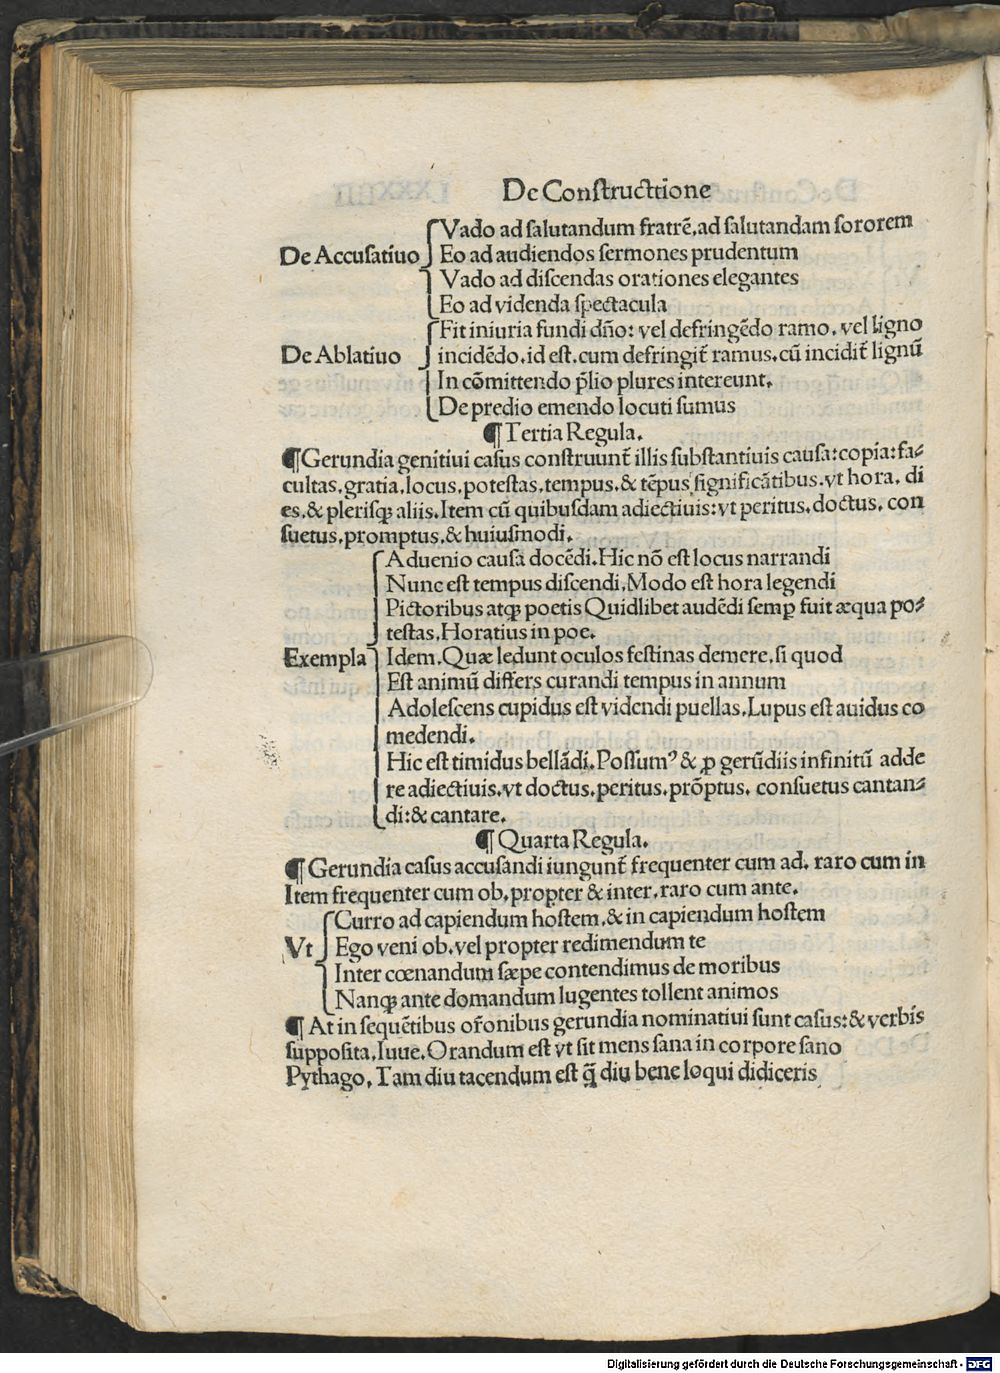 De Constructtione
Vado ad salutandum fratrē.ad salutandam sororem
De Accusatiuo Eo ad audiendos sermones prudentum
Vado ad discendas orationes elegantes
Eo ad videnda spectacula
Fit iniuria fundi dño: vel defringēdo ramo. vel ligno
De Ablatiuo incidēdo.id est.cum defringit̄ ramus.cū incidit̄ lignū
In cōmittendo p̄lio plures intereunt.
De predio emendo locuti sumus
¶ Tertia Regula.
¶ Gerundia genitiui casus construunt̄ illis substantiuis causa:copia:fa-
cultas.gratia.locus.potestas.tempus.& tēpus significātibus.vt hora. di
es.& plerisqꝫ aliis.Item cū quibusdam adiectiuis:vt peritus.doctus. con
suetus.promptus.& huiusmodi.
Aduenio causa docēdi.Hic nō est locus narrandi
Nunc est tempus discendi.Modo est hora legendi
Pictoribus atqꝫ poetis Quidlibet audēdi semꝑ fuit æqua po-
testas.Horatius in poe.
Exempla Idem.Quæ ledunt oculos festinas demere.si quod
Est animū differs curandi tempus in annum
Adolescens cupidus est videndi puellas.Lupus est auidus co
medendi.
Hic est timidus bellādi.Possumꝰ & ꝓ gerūdiis infinitū adde
re adiectiuis.vt doctus.peritus.prōptus. consuetus cantan-
di:& cantare.
¶ Quarta Regula.
¶ Gerundia casus accusandi iungunt̄ frequenter cum ad. raro cum in
Item frequenter cum ob.propter & inter.raro cum ante.
Curro ad capiendum hostem.& in capiendum hostem
Vt Ego veni ob.vel propter redimendum te
Inter cœnandum sæpe contendimus de moribus
Nanqꝫ ante domandum lugentes tollent animos
¶ At in sequētibus or̄onibus gerundia nominatiui sunt casus:& verbis
supposita.Iuue.Orandum est vt sit mens sana in corpore sano
Pythago. Tam diu tacendum est q̄̄ diu bene loqui didiceris
Digitalisierung gefördert durch die Deutsche Forschungsgemeinschaft - DFG